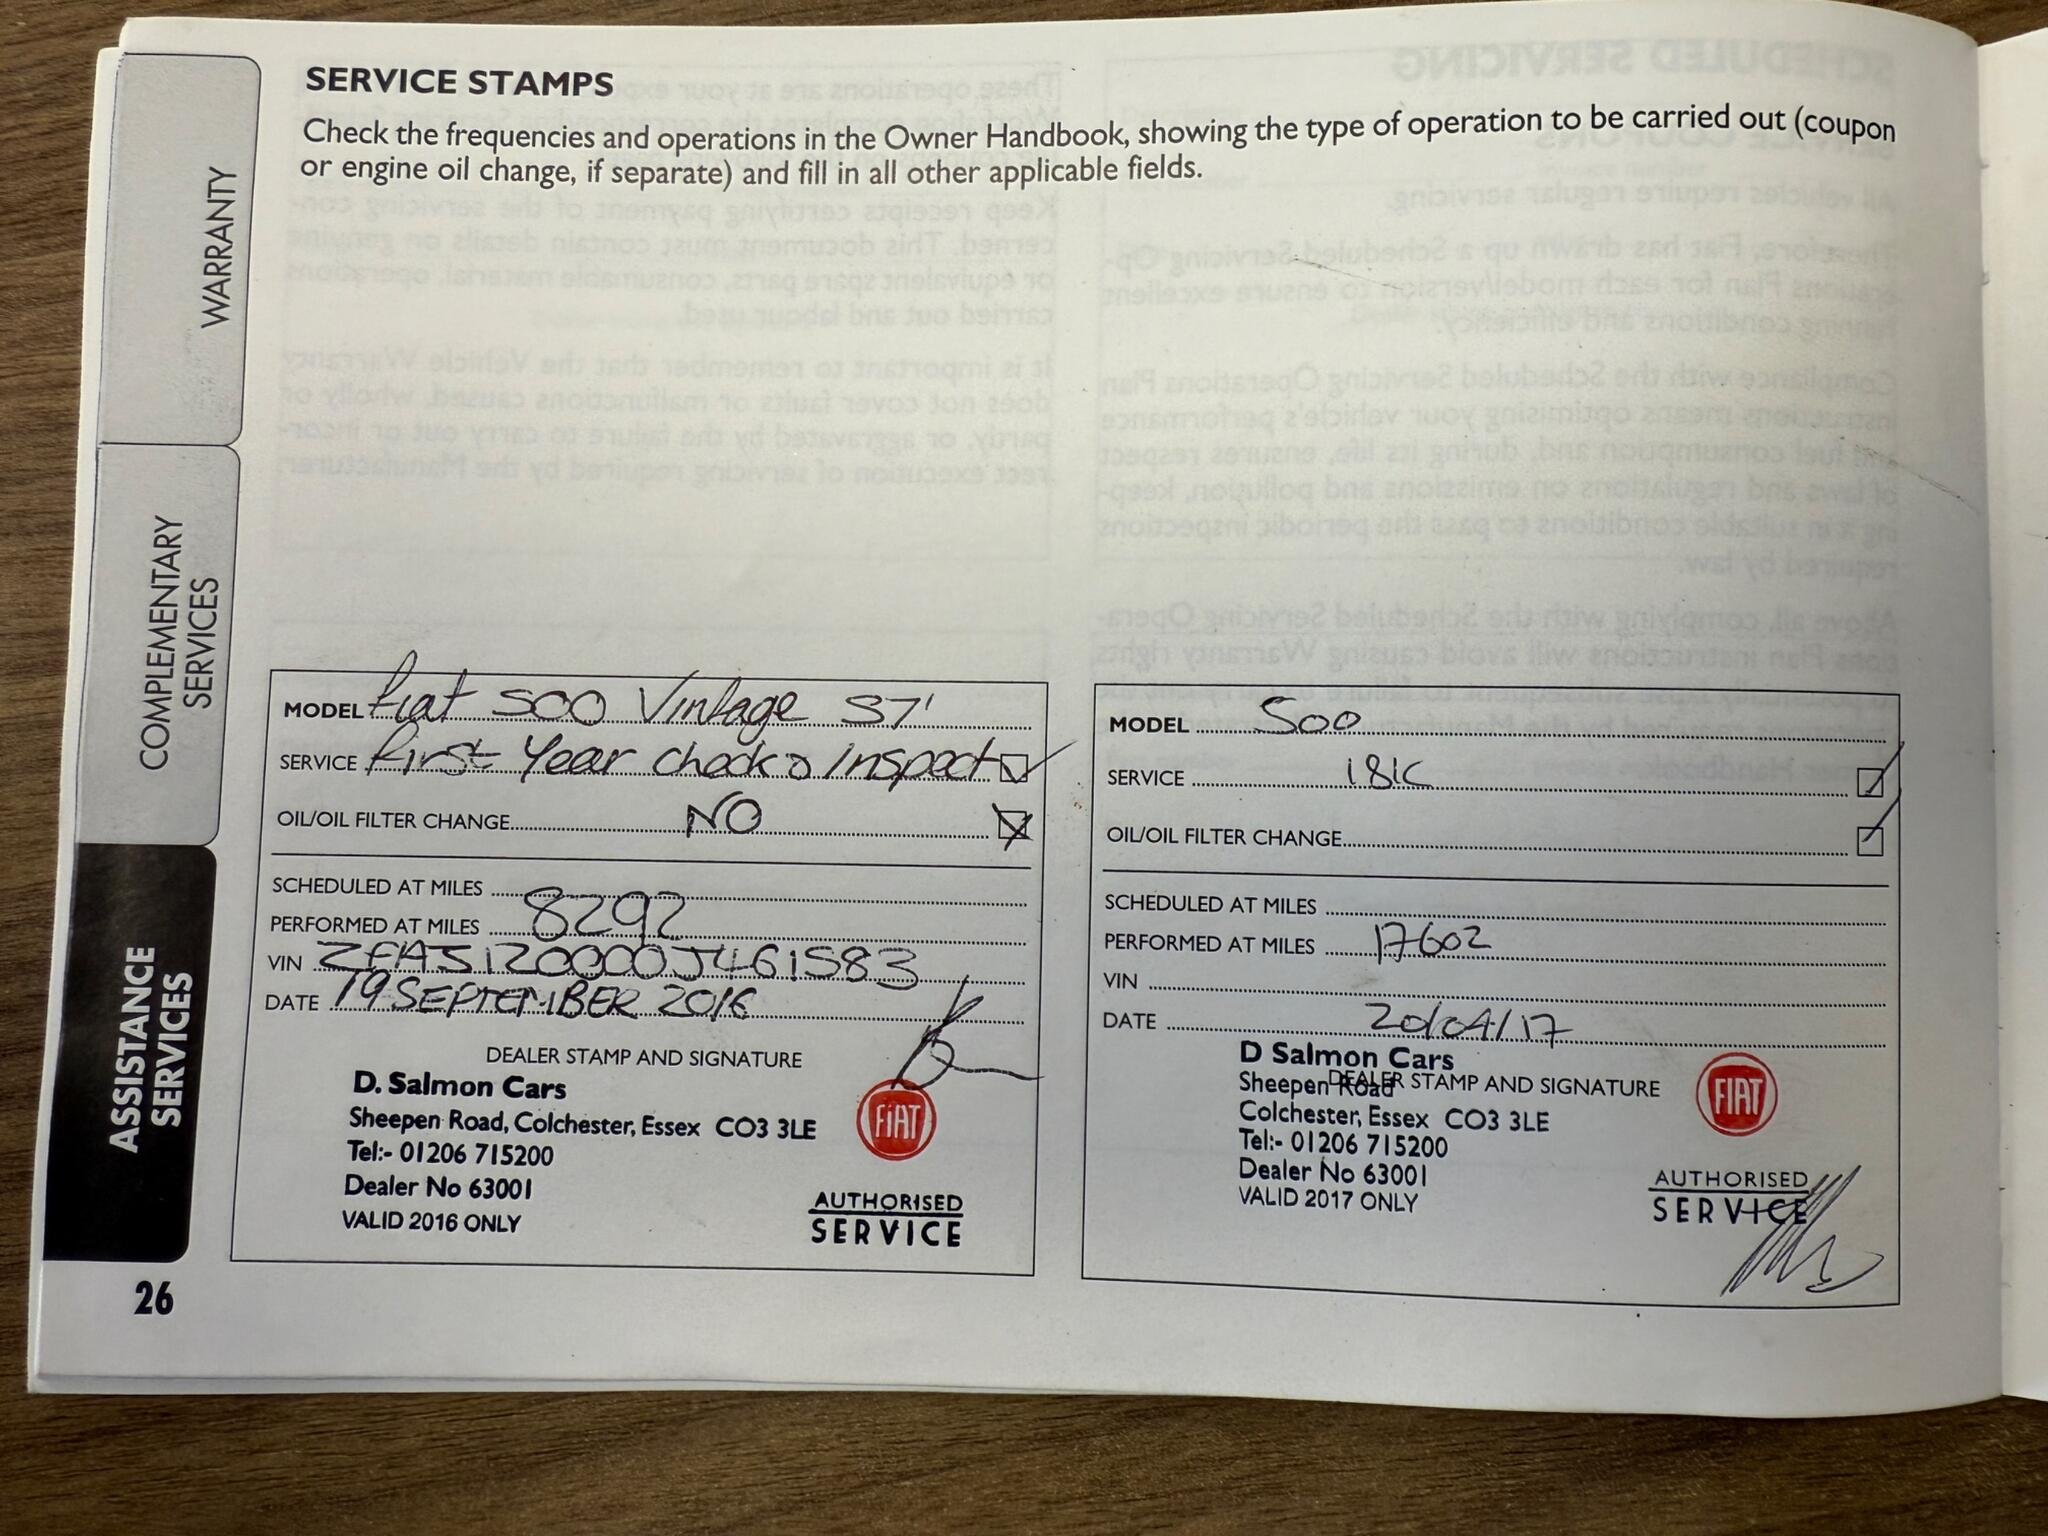 SERVICE STAMPS
Check the frequencies and operations in the Owner Handbook, showing the type of operation to be carried out (coupon
or engine oil change, if separate) and fill in all other applicable fields.
WARRANTY
COMPLEMENTARY
SERVICES
ASSISTANCE
SERVICES
26
MODEL Fiat 500 Vintage 57'
SERVICE First Year Check & Inspect
OIL/OIL FILTER CHANGE NO
SCHEDULED AT MILES
PERFORMED AT MILES 8292
VIN ZFA3120000J461583
DATE 19 SEPTEMBER 2016
DEALER STAMP AND SIGNATURE
D. Salmon Cars
Sheepen Road, Colchester, Essex CO3 3LE
Tel:- 01206 715200
Dealer No 63001
VALID 2016 ONLY
FIAT
AUTHORISED
SERVICE
MODEL 500
SERVICE 18K
OIL/OIL FILTER CHANGE
SCHEDULED AT MILES
PERFORMED AT MILES 17602
VIN
DATE 20/04/17
DEALER STAMP AND SIGNATURE
D Salmon Cars
Sheepen Road
Colchester, Essex CO3 3LE
Tel:- 01206 715200
Dealer No 63001
VALID 2017 ONLY
FIAT
AUTHORISED
SERVICE